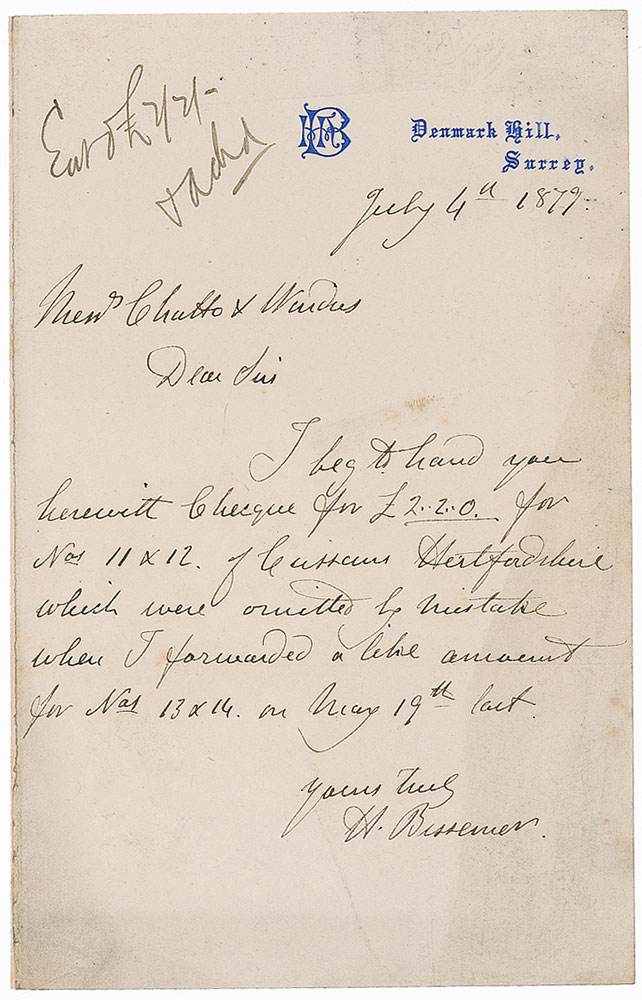 £2/2/-
& achd
HB
Denmark Hill,
Surrey.
July 4th 1879.
Messrs Chatto & Windus
Dear Sirs
I beg to hand you
herewith Checque for £2..2..0. for
Nos 11 & 12. of Cussans Hertfordshire
which were omitted by mistake
when I forwarded a like amount
for Nos 13 & 14. on May 19th last.
Yours truly
H. Bessemer.